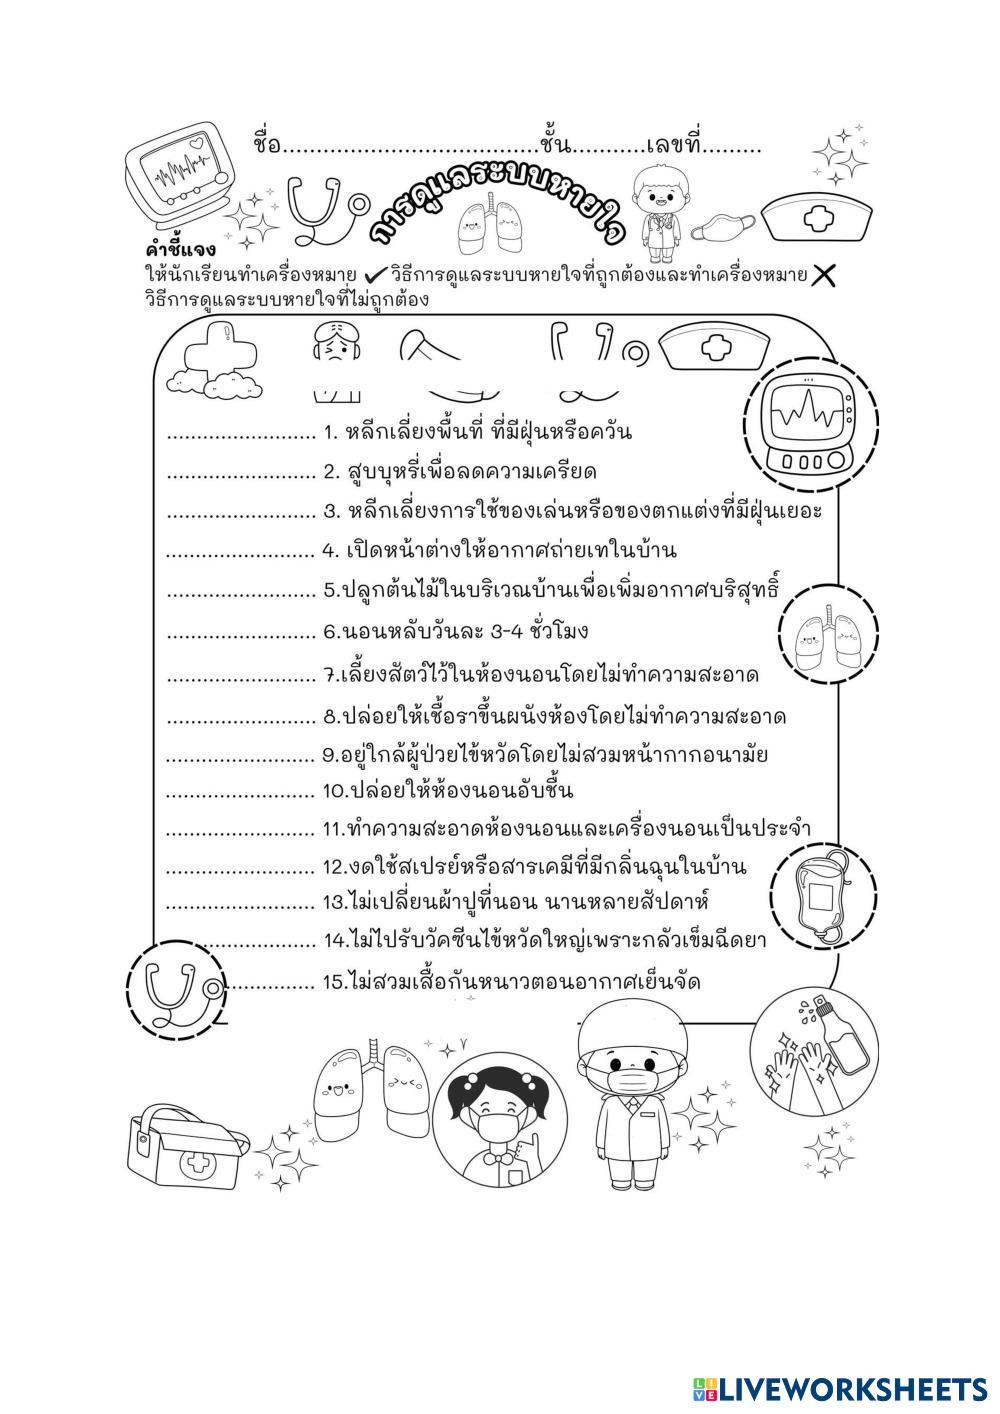 ชื่อ......................................ชั้น...........เลขที่.........
การดูแลระบบหายใจ
คำชี้แจง
ให้นักเรียนทำเครื่องหมาย ✓ วิธีการดูแลระบบหายใจที่ถูกต้องและทำเครื่องหมาย ✕
วิธีการดูแลระบบหายใจที่ไม่ถูกต้อง
......................... 1. หลีกเลี่ยงพื้นที่ ที่มีฝุ่นหรือควัน
......................... 2. สูบบุหรี่เพื่อลดความเครียด
......................... 3. หลีกเลี่ยงการใช้ของเล่นหรือของตกแต่งที่มีฝุ่นเยอะ
......................... 4. เปิดหน้าต่างให้อากาศถ่ายเทในบ้าน
......................... 5.ปลูกต้นไม้ในบริเวณบ้านเพื่อเพิ่มอากาศบริสุทธิ์
......................... 6.นอนหลับวันละ 3-4 ชั่วโมง
......................... 7.เลี้ยงสัตว์ไว้ในห้องนอนโดยไม่ทำความสะอาด
......................... 8.ปล่อยให้เชื้อราขึ้นผนังห้องโดยไม่ทำความสะอาด
......................... 9.อยู่ใกล้ผู้ป่วยไข้หวัดโดยไม่สวมหน้ากากอนามัย
......................... 10.ปล่อยให้ห้องนอนอับชื้น
......................... 11.ทำความสะอาดห้องนอนและเครื่องนอนเป็นประจำ
......................... 12.งดใช้สเปรย์หรือสารเคมีที่มีกลิ่นฉุนในบ้าน
......................... 13.ไม่เปลี่ยนผ้าปูที่นอน นานหลายสัปดาห์
................... 14.ไม่ไปรับวัคซีนไข้หวัดใหญ่เพราะกลัวเข็มฉีดยา
............... 15.ไม่สวมเสื้อกันหนาวตอนอากาศเย็นจัด
LIVE LIVEWORKSHEETS